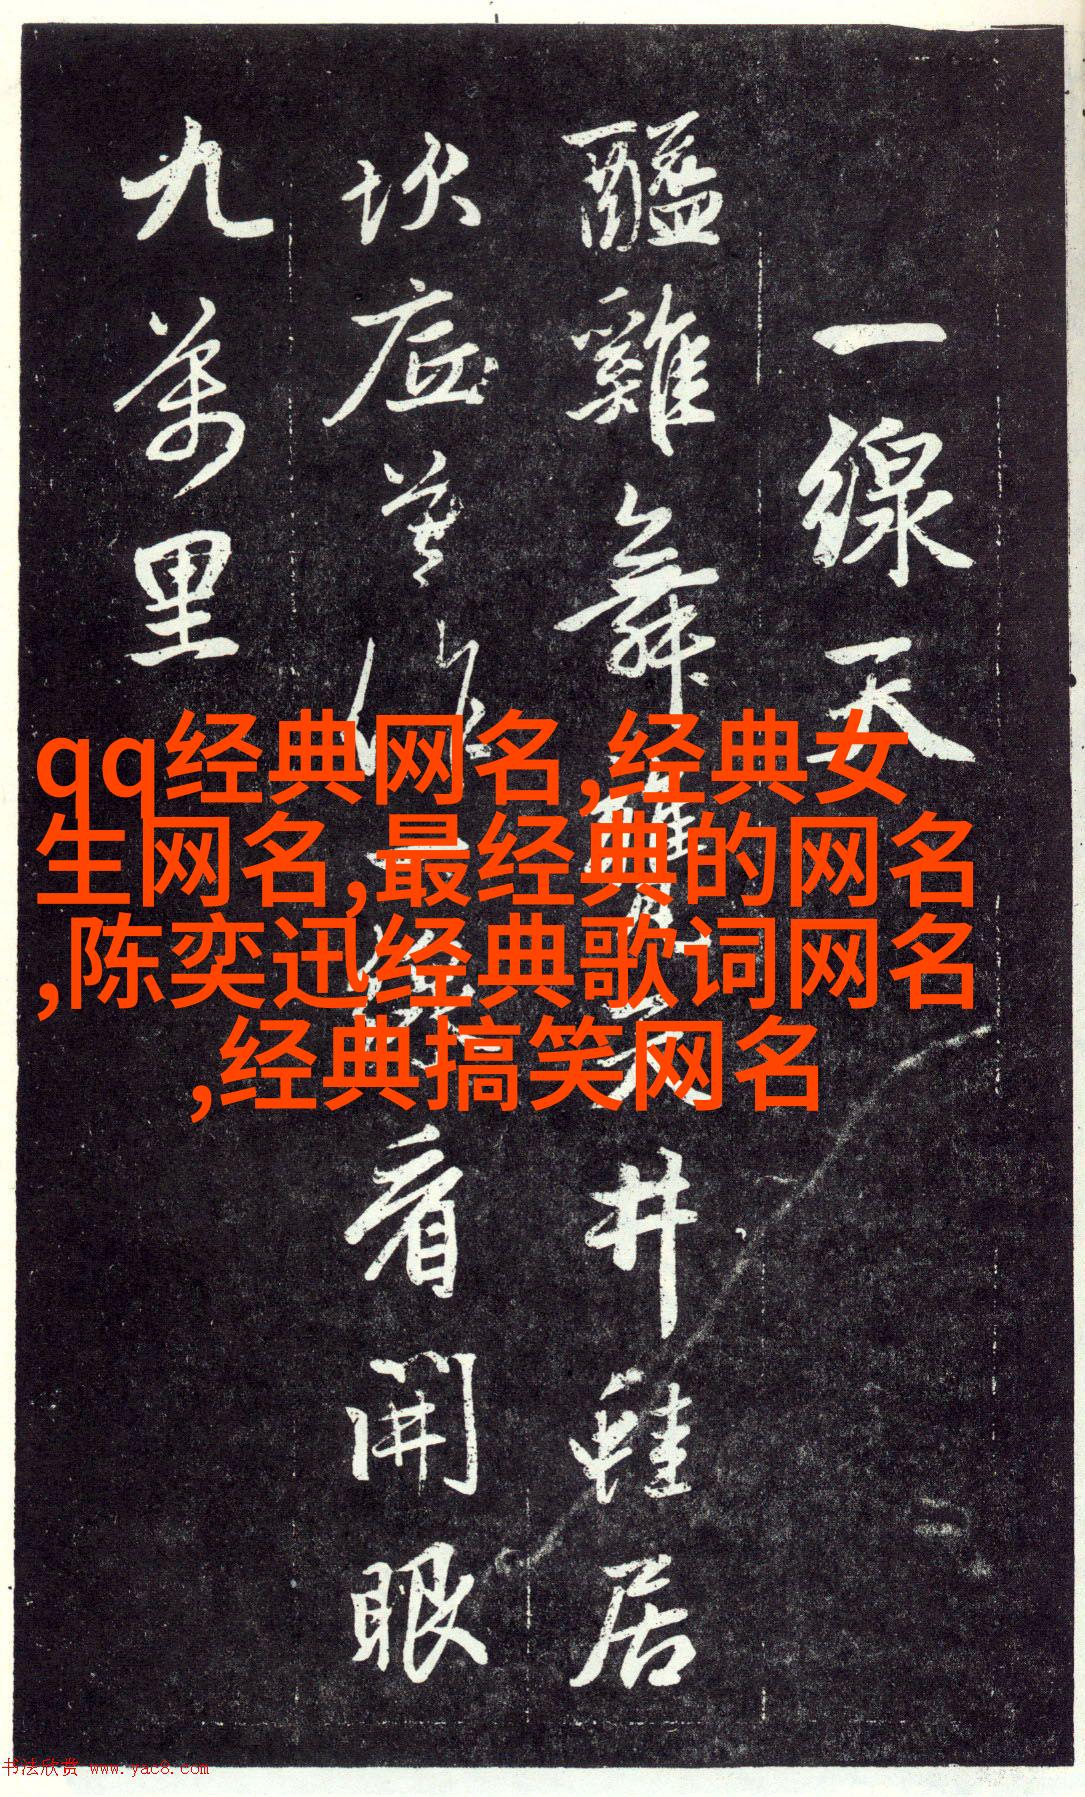 一線天
醯雞舞甕天井蛙居
坎底莫作一線看開眼
九萬里
qq经典网名,经典女
生网名,最经典的网名
,陈奕迅经典歌词网名
,经典搞笑网名
书法欣赏 www.yac8.com